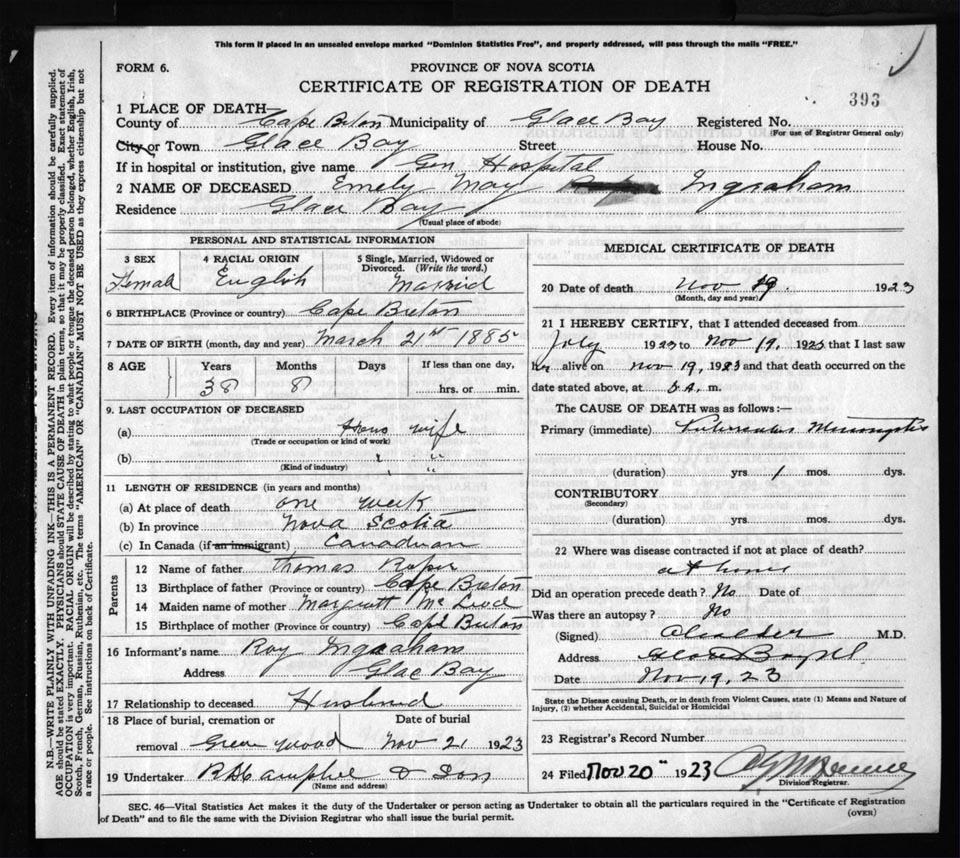 This form if placed in an unsealed envelope marked "Dominion Statistics Free", and properly addressed, will pass through the mails "FREE."
FORM 6.
PROVINCE OF NOVA SCOTIA
CERTIFICATE OF REGISTRATION OF DEATH
393
1 PLACE OF DEATH—
County of Cape Breton Municipality of Glace Bay Registered No.
(For use of Registrar General only)
City or Town Glace Bay Street House No.
If in hospital or institution, give name Gen Hospital
2 NAME OF DECEASED Emely May Ingraham
Residence Glace Bay
(Usual place of abode)
PERSONAL AND STATISTICAL INFORMATION
3 SEX 4 RACIAL ORIGIN 5 Single, Married, Widowed or Divorced. (Write the word.)
Female English Married
6 BIRTHPLACE (Province or country) Cape Breton
7 DATE OF BIRTH (month, day and year) March 21st 1885
8 AGE Years Months Days If less than one day,
38 8 hrs. or min.
9. LAST OCCUPATION OF DECEASED
(a) Hous wife
(Trade or occupation or kind of work)
(b) " "
(Kind of industry)
11 LENGTH OF RESIDENCE (in years and months)
(a) At place of death one week
(b) In province Nova Scotia
(c) In Canada (if an immigrant) Canaduan
Parents
12 Name of father Thomas Roper
13 Birthplace of father (Province or country) Cape Breton
14 Maiden name of mother Margrett McLeod
15 Birthplace of mother (Province or country) Cape Breton
16 Informant's name Roy Ingraham
Address Glac Bay
17 Relationship to deceased Husband
18 Place of burial, cremation or Date of burial
removal Green wood Nov 21 1923
19 Undertaker & Son
(Name and address)
MEDICAL CERTIFICATE OF DEATH
20 Date of death Nov 19. 1923
(Month, day and year)
21 I HEREBY CERTIFY, that I attended deceased from
July 1923 to Nov 19. 1923 that I last saw
her alive on Nov 19, 1923 and that death occurred on the
date stated above, at m.
The CAUSE OF DEATH was as follows:—
Primary (immediate) Tuberculus
(duration) yrs. 1 mos. dys.
CONTRIBUTORY
(Secondary)
(duration) yrs. mos. dys.
22 Where was disease contracted if not at place of death?
at home
Did an operation precede death? No Date of
Was there an autopsy? No
(Signed) M.D.
Address Glace Bay
Date Nov 19, 23
State the Disease causing Death, or in death from Violent Causes, state (1) Means and Nature of
Injury, (2) whether Accidental, Suicidal or Homicidal
23 Registrar's Record Number
24 Filed Nov 20" 1923
Division Registrar.
SEC. 46—Vital Statistics Act makes it the duty of the Undertaker or person acting as Undertaker to obtain all the particulars required in the "Certificate of Registration
of Death" and to file the same with the Division Registrar who shall issue the burial permit.
(OVER)
N.B.—WRITE PLAINLY WITH UNFADING INK—THIS IS A PERMANENT RECORD. Every item of information should be carefully supplied.
AGE should be stated EXACTLY. PHYSICIANS should STATE CAUSE OF DEATH in plain terms, so that it may be properly classified. Exact statement of
OCCUPATION is very important. RACIAL ORIGIN will be described by stating to what people or tongue the deceased person belonged, whether English, Irish,
Scotch, French, German, Russian, Ruthenian, etc. The terms "AMERICAN" OR "CANADIAN" MUST NOT BE USED as they express citizenship but not
a race or people. See instructions on back of Certificate.